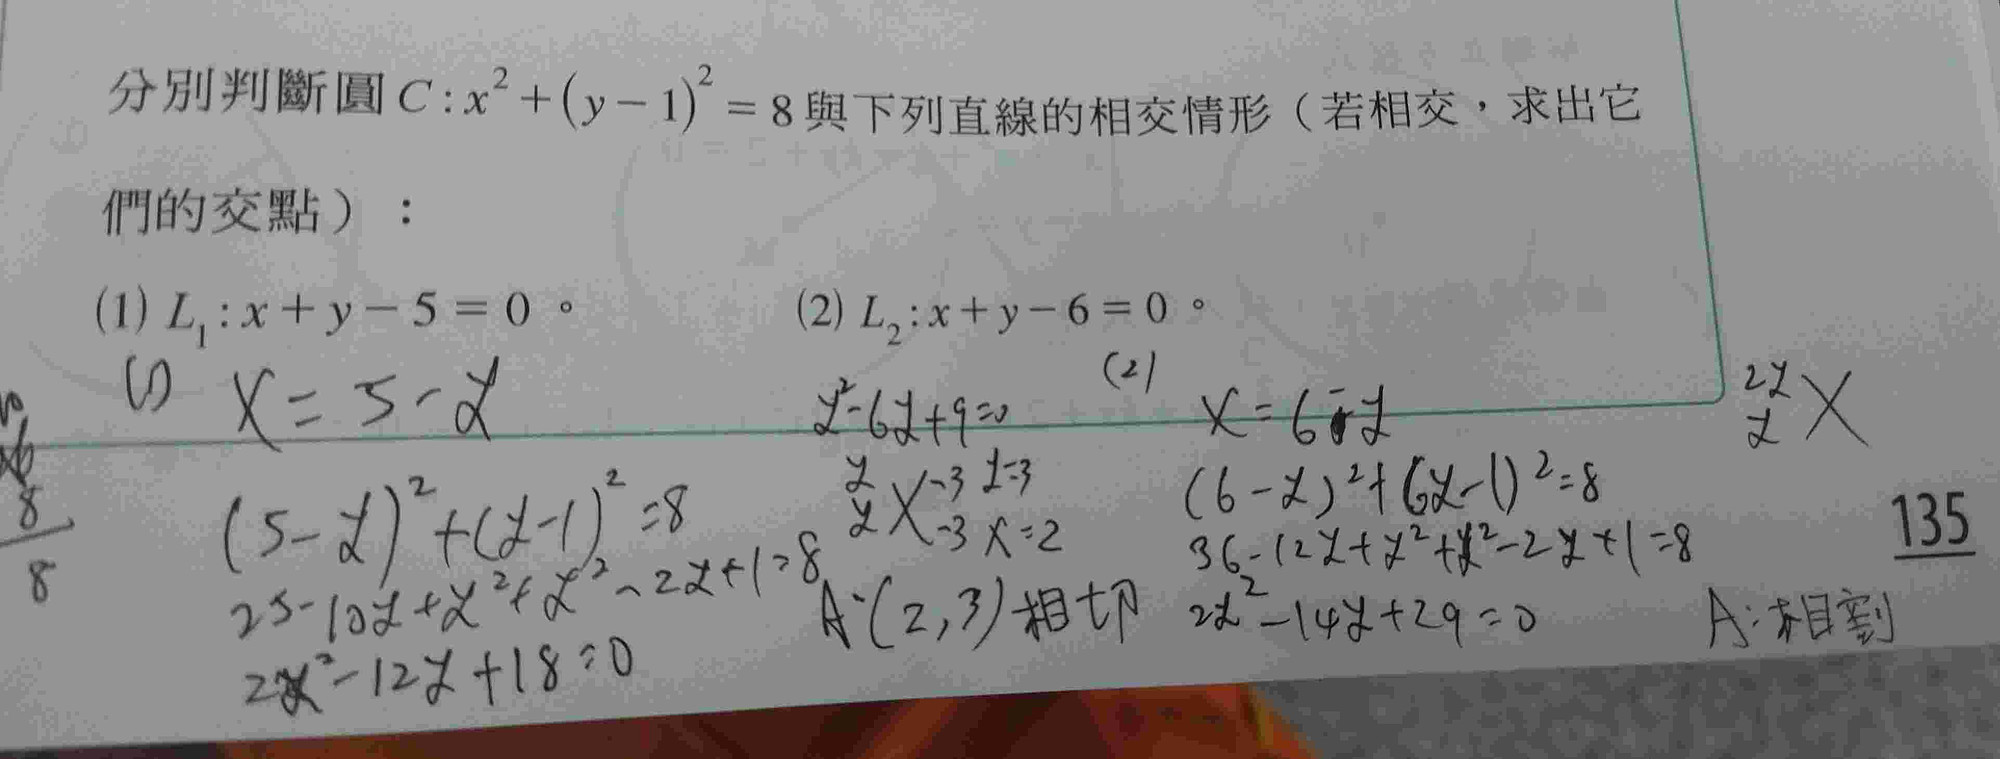 分別判斷圓 C : x² + (y − 1)² = 8 與下列直線的相交情形（若相交，求出它
們的交點）：
(1) L₁ : x + y − 5 = 0。
(2) L₂ : x + y − 6 = 0。
(1) x = 5 - y
(5 - y)² + (y - 1)² = 8
25 - 10y + y² + y² - 2y + 1 = 8
2y² - 12y + 18 = 0
y² - 6y + 9 = 0
y -3 y = 3
y -3 x = 2
A: (2, 3) 相切
(2) x = 6 - y
(6 - y)² + (y - 1)² = 8
36 - 12y + y² + y² - 2y + 1 = 8
2y² - 14y + 29 = 0
2y
y
A: 相割
8
8
135